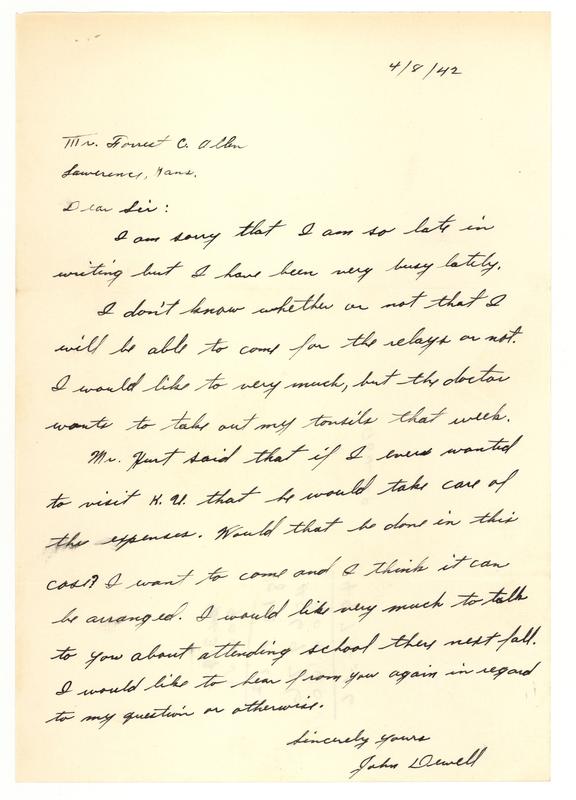 4/8/42
Mr. Forrest C. Allen
Lawerence, Kans.
Dear Sir:
I am sorry that I am so late in
writing but I have been very busy lately.
I don't know whether or not that I
will be able to come for the relays or not.
I would like to very much, but the doctor
wants to take out my tonsils that week.
Mr. Hurt said that if I ever wanted
to visit K.U. that he would take care of
the expenses. Would that be done in this
case? I want to come and I think it can
be arranged. I would like very much to talk
to you about attending school there next fall.
I would like to hear from you again in regard
to my question or otherwise.
Sincerely yours
John Dewell